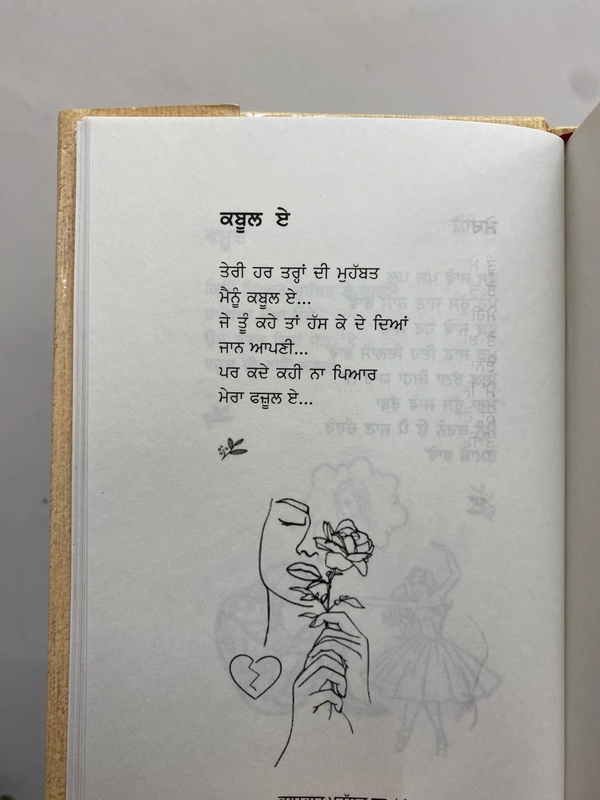 ਕਬੂਲ ਏ
ਤੇਰੀ ਹਰ ਤਰ੍ਹਾਂ ਦੀ ਮੁਹੱਬਤ
ਮੈਨੂੰ ਕਬੂਲ ਏ...
ਜੇ ਤੂੰ ਕਹੇ ਤਾਂ ਹੱਸ ਕੇ ਦੇ ਦਿਆਂ
ਜਾਨ ਆਪਣੀ...
ਪਰ ਕਦੇ ਕਹੀ ਨਾ ਪਿਆਰ
ਮੇਰਾ ਫਜ਼ੂਲ ਏ...